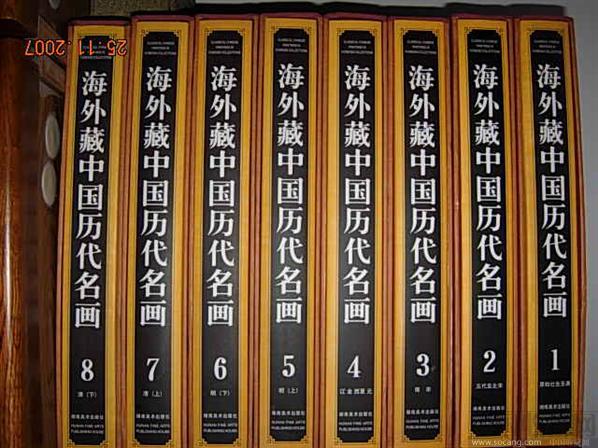 25.11.2007
CLASSICAL CHINESE
PAINTINGS IN
OVERSEAS COLLECTIONS
海外藏中国历代名画
8
清(下)
湖南美术出版社
HUNAN FINE ARTS
PUBLISHING HOUSE
海外藏中国历代名画
7
清(上)
湖南美术出版社
HUNAN FINE ARTS
PUBLISHING HOUSE
海外藏中国历代名画
6
明(下)
湖南美术出版社
HUNAN FINE ARTS
PUBLISHING HOUSE
海外藏中国历代名画
5
明(上)
湖南美术出版社
HUNAN FINE ARTS
PUBLISHING HOUSE
海外藏中国历代名画
4
辽金西夏元
湖南美术出版社
HUNAN FINE ARTS
PUBLISHING HOUSE
海外藏中国历代名画
3
南宋
湖南美术出版社
HUNAN FINE ARTS
PUBLISHING HOUSE
海外藏中国历代名画
2
五代至北宋
湖南美术出版社
HUNAN FINE ARTS
PUBLISHING HOUSE
海外藏中国历代名画
1
原始社会至唐
湖南美术出版社
HUNAN FINE ARTS
PUBLISHING HOUSE
www.socang.com